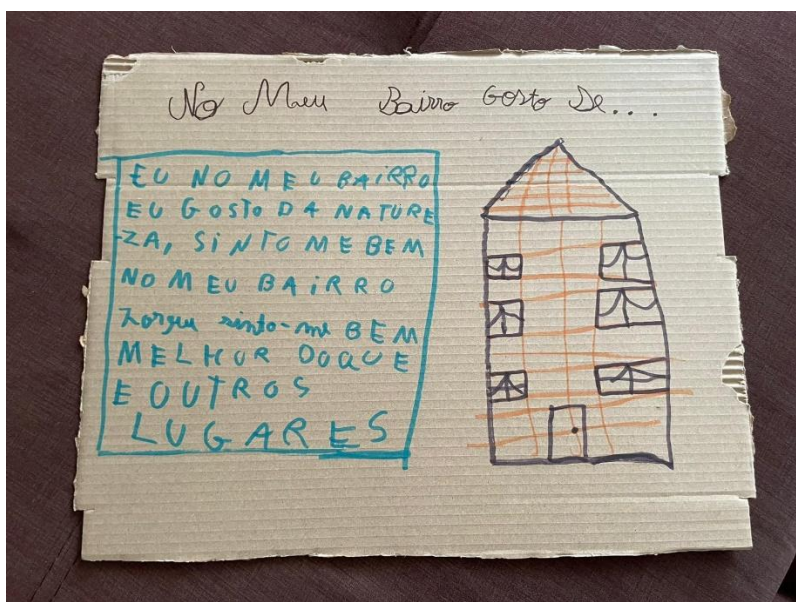 No Meu Bairro Gosto De...
EU NO MEU BAiRRO
EU GOSTO DA NATURE
-ZA, SiNTO ME BEM
NO MEU BAiRRO
Porque sinto-me BEM
MELHOR DOQUE
E OUTROS
LUGARES